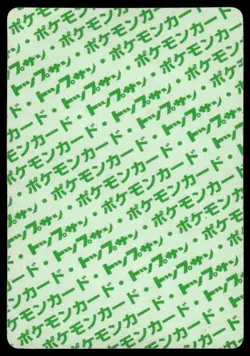 ポケモンカード・トップサン
トップサン・ポケモンカード
ポケモンカード・トップサン・
トップサン・ポケモンカード・
ポケモンカード・トップサン・
トップサン・ポケモンカード・
ポケモンカード・トップサン・
トップサン・ポケモンカード・
ポケモンカード・トップサン・
トップサン・ポケモンカード
ポケモンカード・トップサン